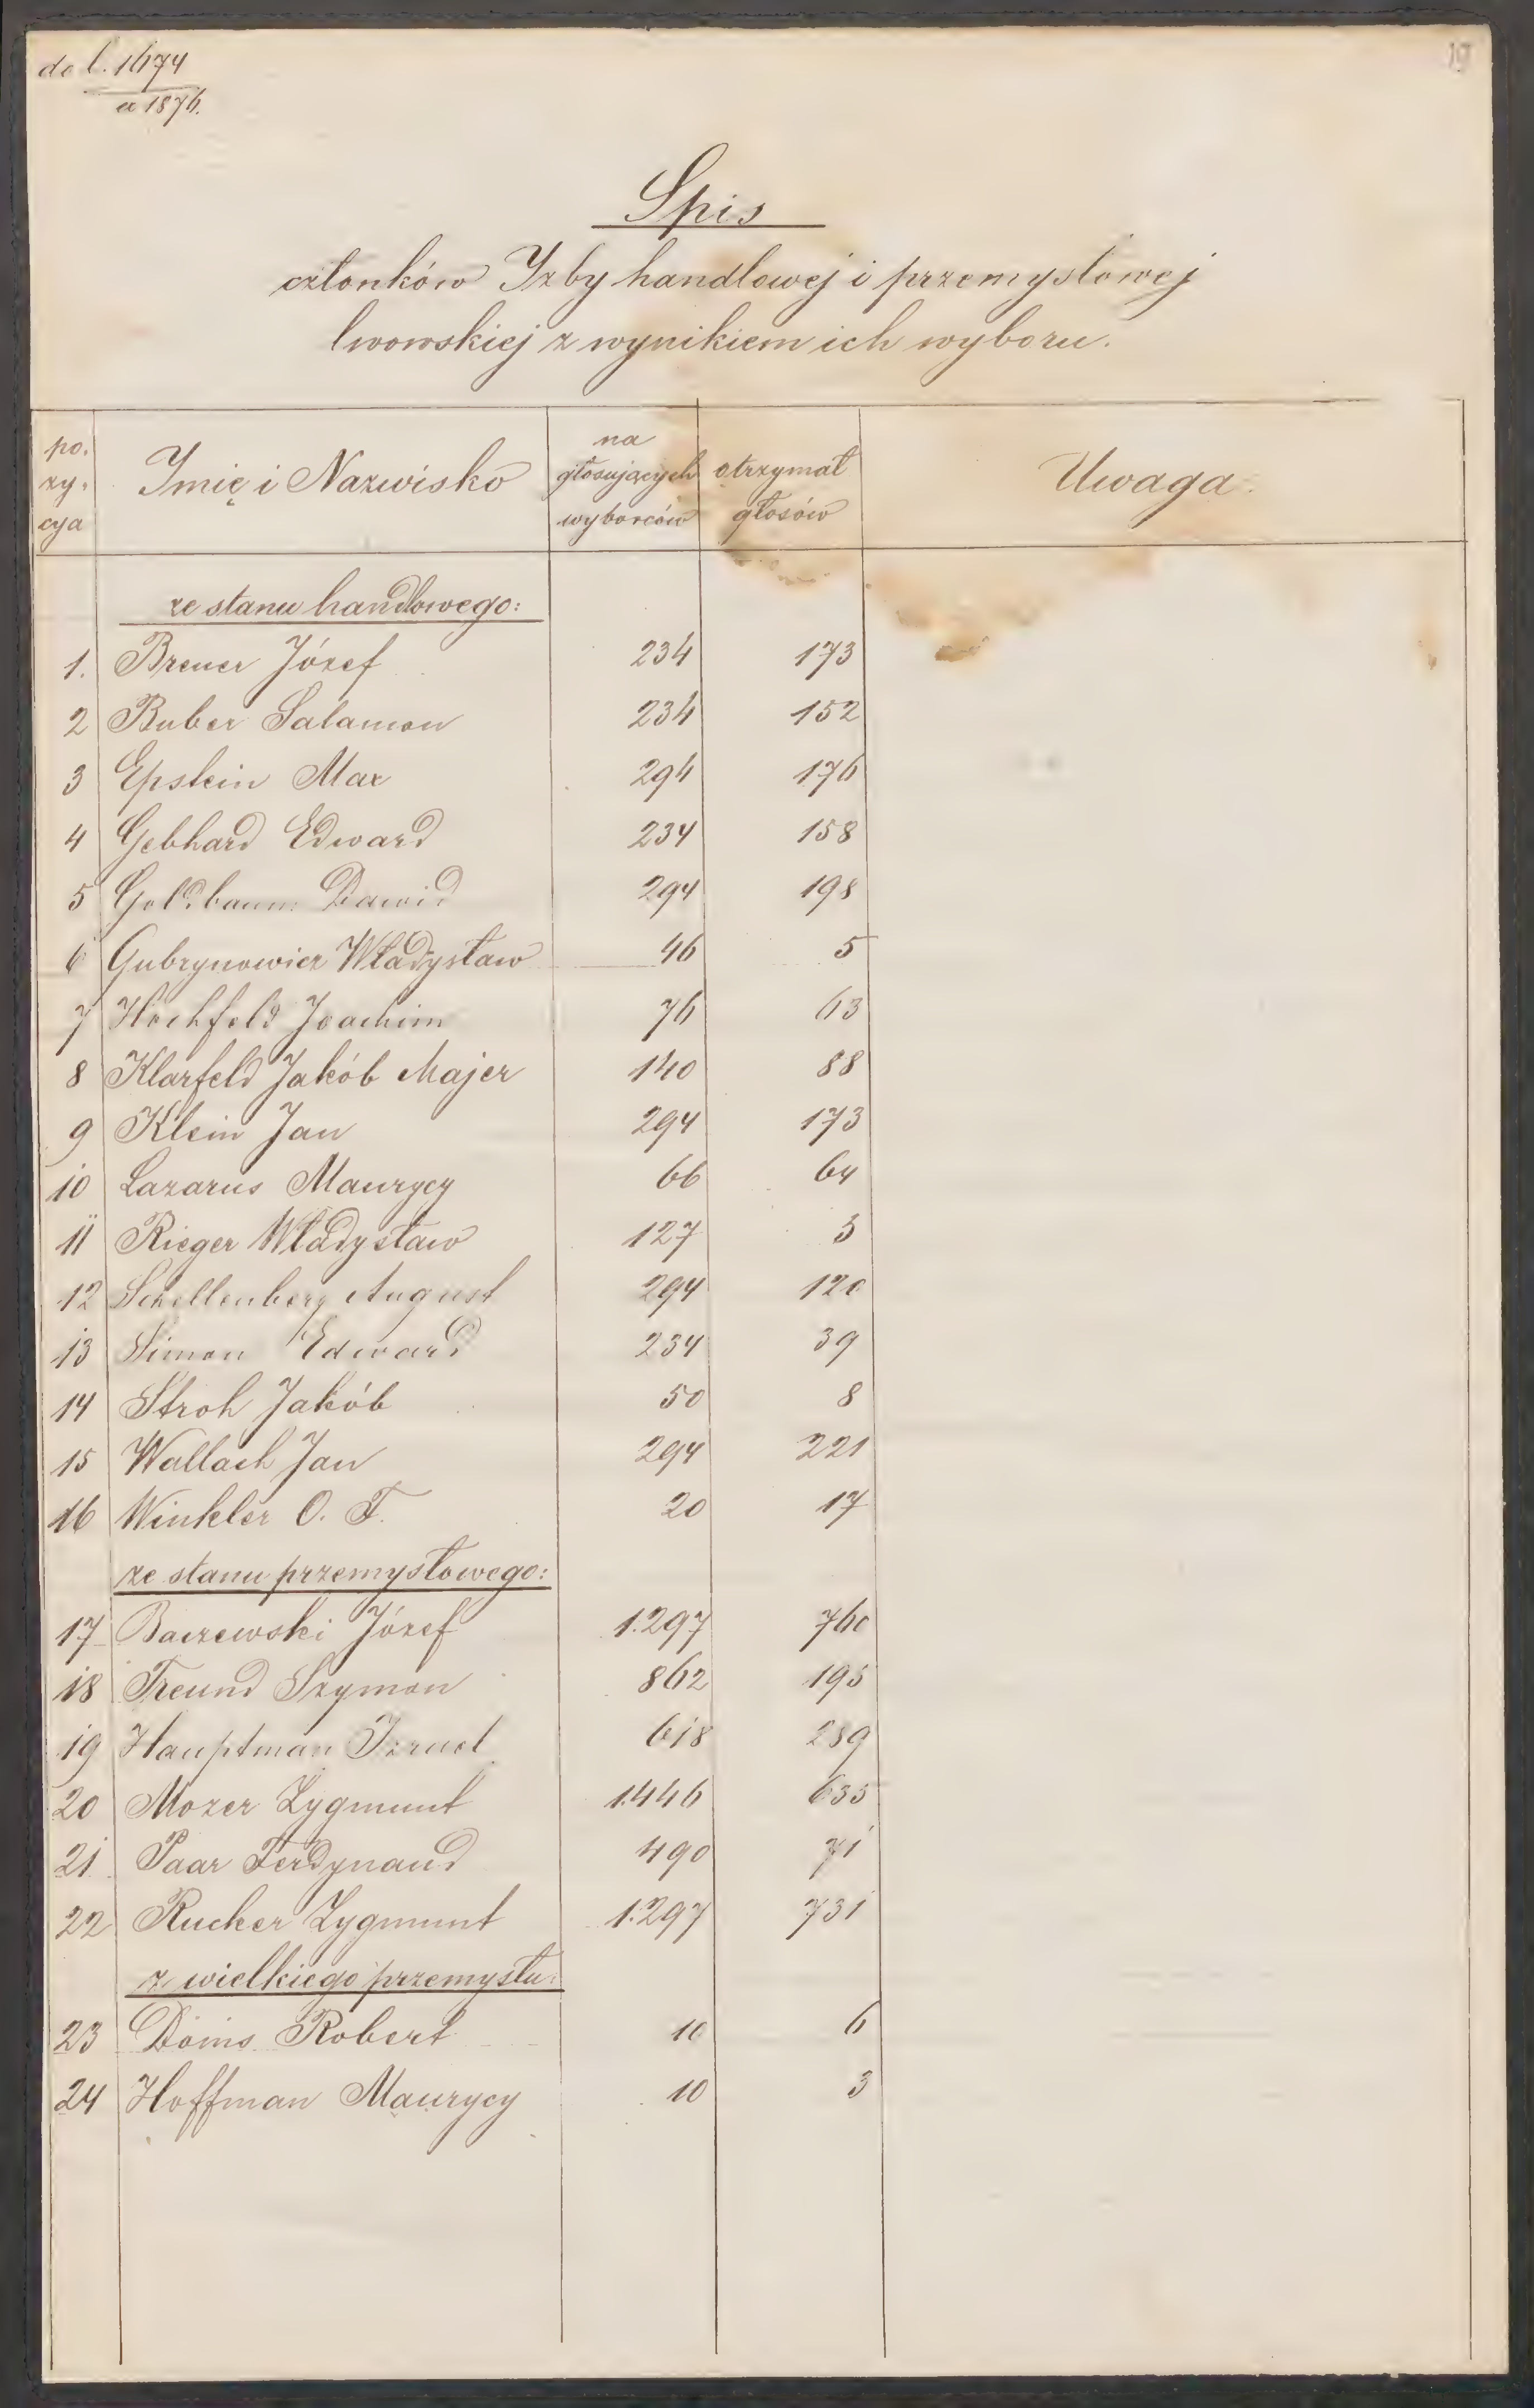 do l. 1674
ex 1876.
19
Spis
członków Izby handlowej i przemysłowej
lwowskiej z wynikiem ich wyboru.
po. zy. cyja | Imię i Nazwisko | na głosujących wyborców | otrzymał głosów | Uwaga.
ze stanu handlowego:
1. Breuer Józef 234 173
2 Buber Salamon 234 152
3 Epstein Max 294 176
4 Gebhard Edward 234 158
5 Goldbaum Dawid 294 198
6 Gubrynowicz Władysław 46 5
7 Hochfeld Joachim 76 63
8 Klarfeld Jakób Majer 140 88
9 Klein Jan 294 173
10 Lazarus Maurycy 66 64
11 Rieger Władysław 127 3
12 Schellenberg August 294 120
13 Simon Edward 234 39
14 Stroh Jakób 50 8
15 Wallach Jan 294 221
16 Winkler O. T. 20 17
ze stanu przemysłowego:
17 Baczewski Józef 1.297 760
18 Freund Szymon 862 195
19 Hauptman Izrael 618 289
20 Mozer Zygmunt 1.446 635
21 Paar Ferdynand 490 71
22 Rucker Zygmunt 1.297 731
z wielkiego przemysłu:
23 Doms Robert 10 6
24 Hoffman Maurycy 10 3